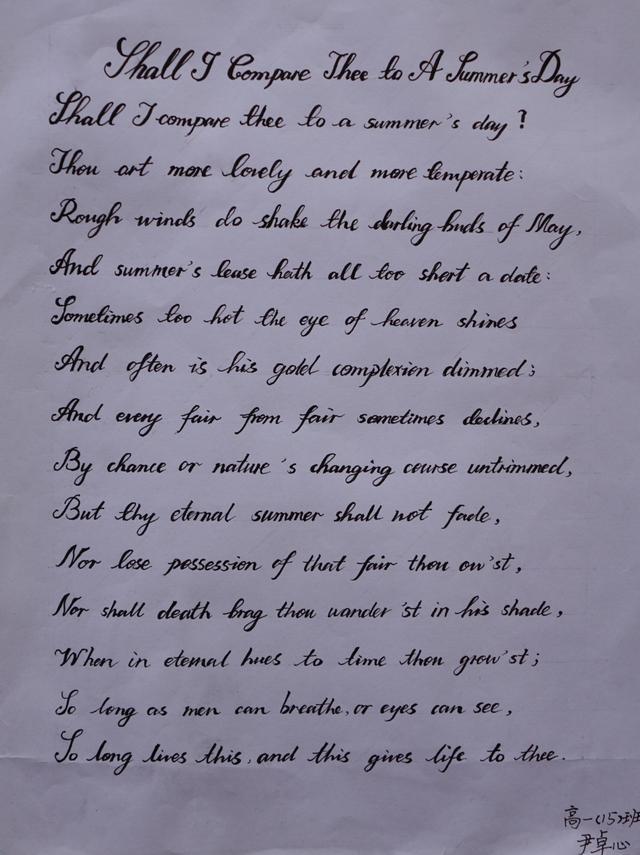 Shall I Compare Thee to A Summer's Day
Shall I compare thee to a summer's day?
Thou art more lovely and more temperate:
Rough winds do shake the darling buds of May,
And summer's lease hath all too short a date:
Sometimes too hot the eye of heaven shines
And often is his gold complexion dimmed;
And every fair from fair sometimes declines,
By chance or nature's changing course untrimmed,
But thy eternal summer shall not fade,
Nor lose possession of that fair thou ow'st,
Nor shall death brag thou wander'st in his shade,
When in eternal hues to time thou grow'st;
So long as men can breathe, or eyes can see,
So long lives this, and this gives life to thee.
高一(15)班
尹卓心